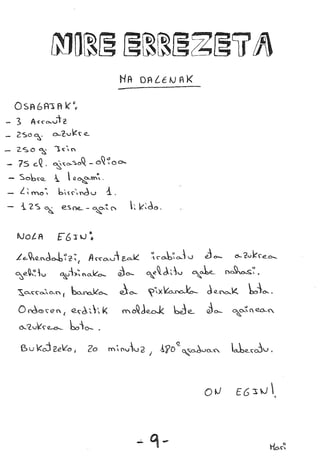 NIRE ERREZETA
MADALENAK
OSAGAIAK:
- 3 Arrautz
- 250 g. azukre
- 250 g. Irin
- 75 cl. girasol-olioa
- Sobre 1 legami.
- Limoi birrindu 1.
- 125 g. esne-gain likido.
NOLA EGIN:
Lehendabizi, Arrautzak irabiatu eta azukrea
gehitu gutxinaka eta gelditu gabe nahasi.
Jarraian, banaka eta pixkanaka denak bota.
Ondoren, erditik moldeak bete eta gainean
azukrea bota.
Bukatzeko, 20 minutuz, 180° graduan laberatu.
ON EGIN!
- 9 -
Mari